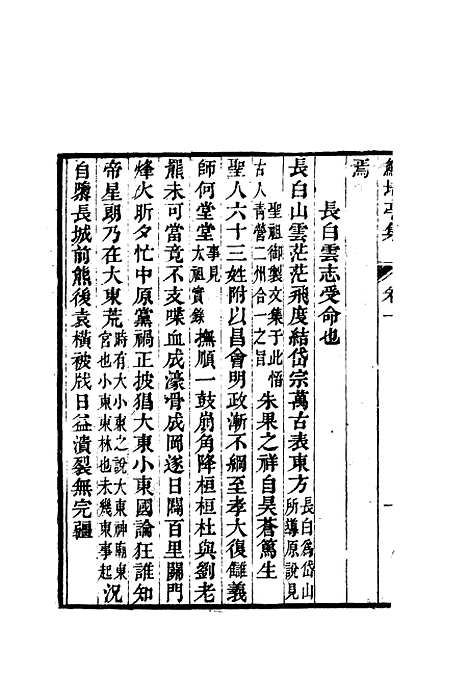 鮚埼亭集 卷一
焉
長白雲志受命也
長白山雲茫茫飛度結岱宗萬古表東方長白為岱山所導原說見
聖祖御製文集于此悟古人青營二州合一之旨朱果之祥自昊蒼篤生
聖人六十三姓附以昌會明政漸不綱至孝大復讎義
師何堂堂事見太祖實錄撫順一鼓崩角降桓桓杜與劉老
羆未可當竟不支喋血成濠骨成岡遂日闢百里關門
烽火昕夕忙中原黨禍正披猖大東小東國論狂誰知
帝星朗乃在大東荒時有大小東之說大東神廟東宮也小東東林也未幾東事起況
自隳長城前熊後袁橫被戕日益潰裂無完疆